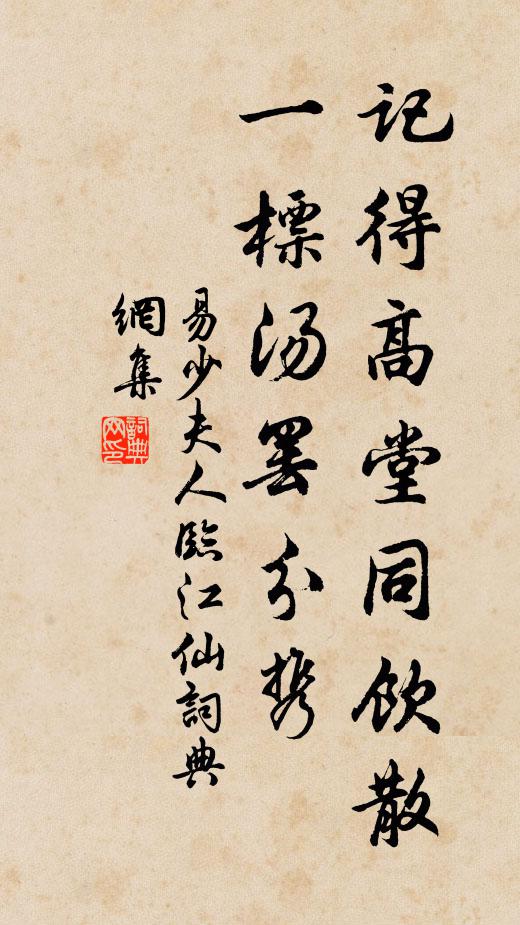 记得高堂同饮散
一標汤罢分携
易少夫人臨江仙詞典
網集
詞典
网印